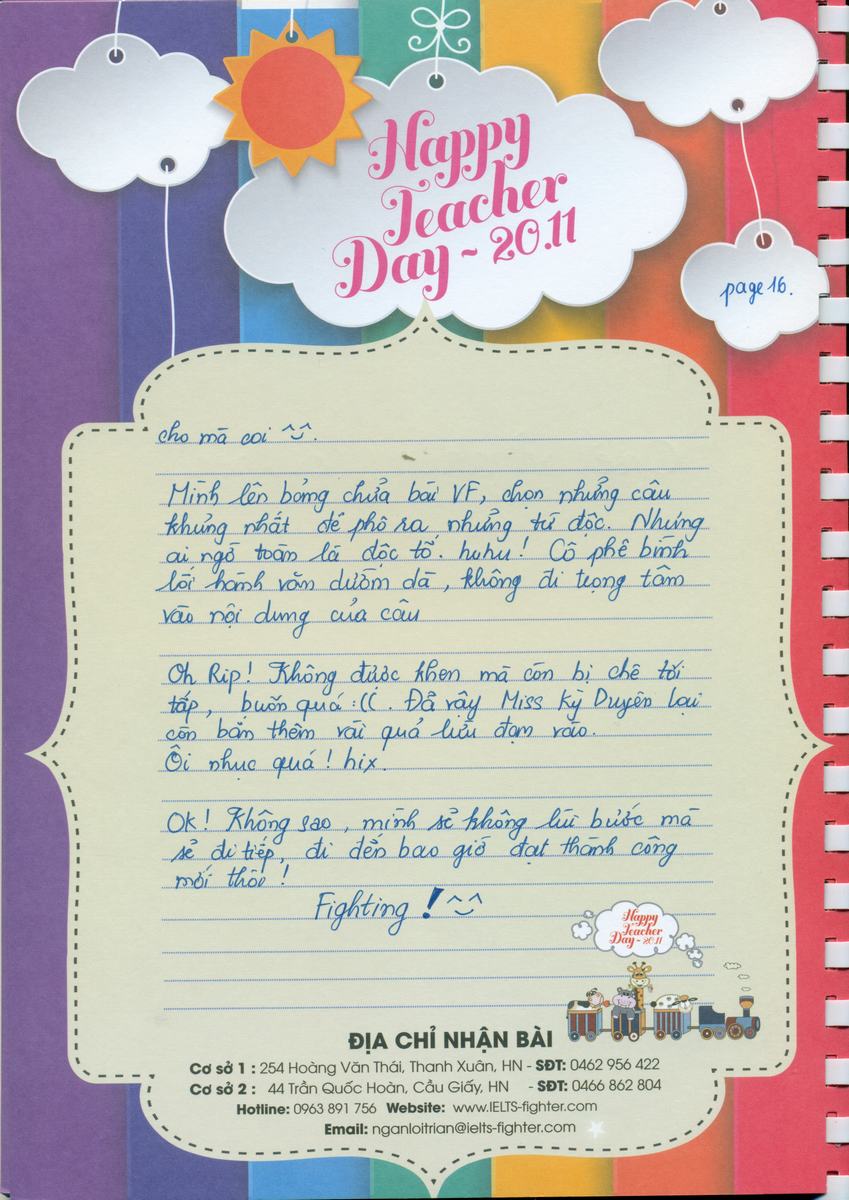 Happy
Teacher
Day - 20.11
page 16.
cho mà coi ^‿^.
Mình lên bảng chữa bài VF, chọn những câu
khủng nhất để phô ra những từ độc. Nhưng
ai ngờ toàn là độc tố. huhu! Cô phê bình
lối hành văn dườm dà, không đi trọng tâm
vào nội dung của câu
Oh Rip! Không được khen mà còn bị chê tới
tấp, buồn quá :((. Đã vậy Miss Kỳ Duyên lại
còn bắn thêm vài quả lựu đạn vào.
Ôi nhục quá! hix.
Ok! Không sao, mình sẽ không lùi bước mà
sẽ đi tiếp, đi đến bao giờ đạt thành công
mới thôi!
Fighting! ^‿^
Happy
Teacher
Day - 20.11
ĐỊA CHỈ NHẬN BÀI
Cơ sở 1 : 254 Hoàng Văn Thái, Thanh Xuân, HN - SĐT: 0462 956 422
Cơ sở 2 : 44 Trần Quốc Hoàn, Cầu Giấy, HN - SĐT: 0466 862 804
Hotline: 0963 891 756 Website: www.IELTS-fighter.com
Email: nganloitrian@ielts-fighter.com